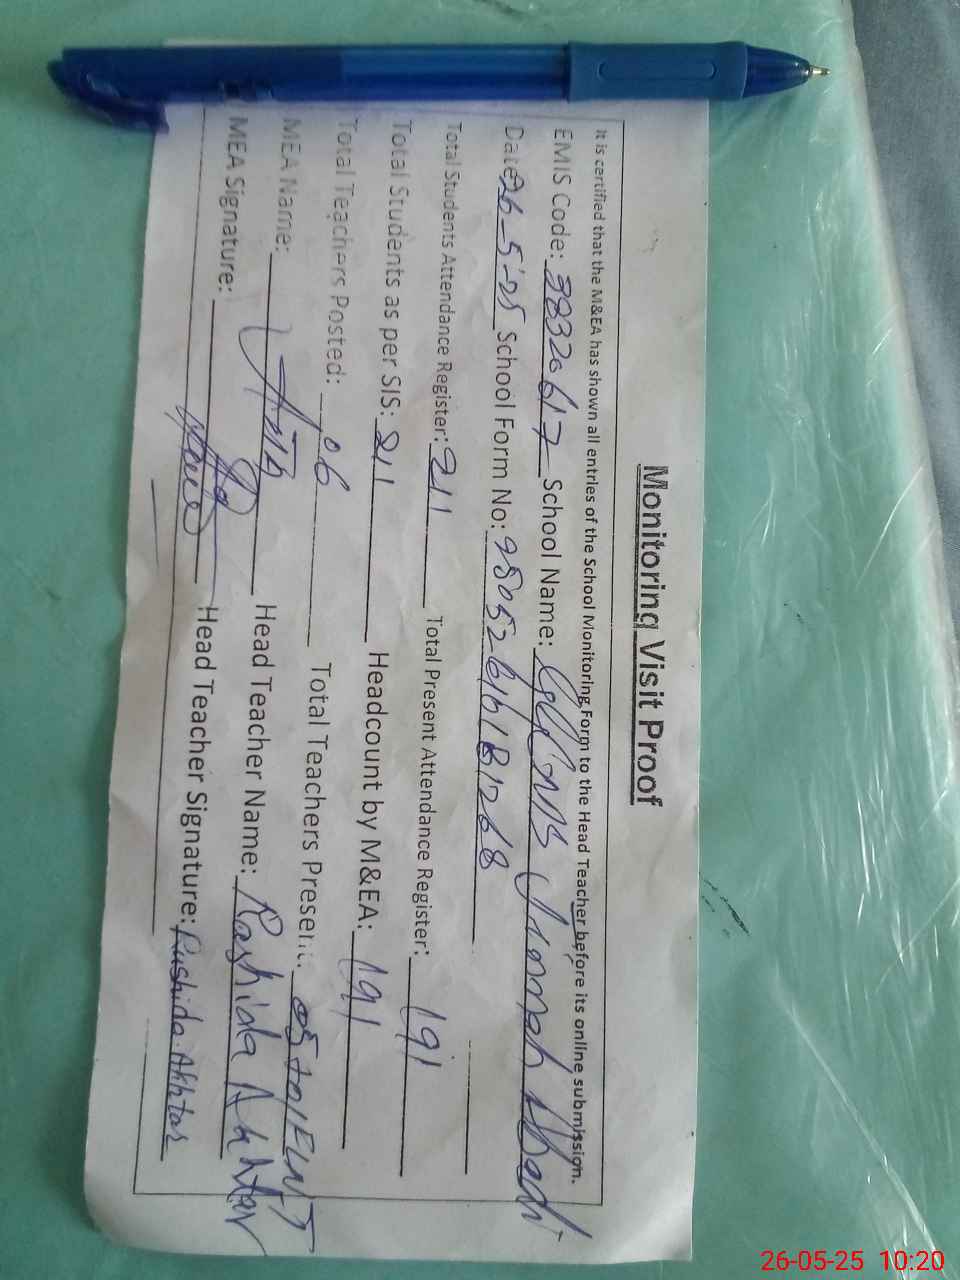 Monitoring Visit Proof
It is certified that the M&EA has shown all entries of the School Monitoring Form to the Head Teacher before its online submission.
EMIS Code: 38320617 School Name: Abad
Date: 26-5-25 School Form No: 250526161B1268
Total Students Attendance Register: 211 Total Present Attendance Register: 191
Total Students as per SIS: 211 Headcount by M&EA: 191
Total Teachers Posted: 06 Total Teachers Present: 05
MEA Name: Head Teacher Name: Rashida Akhtar
MEA Signature: Head Teacher Signature: Rashida Akhtar
26-05-25 10:20